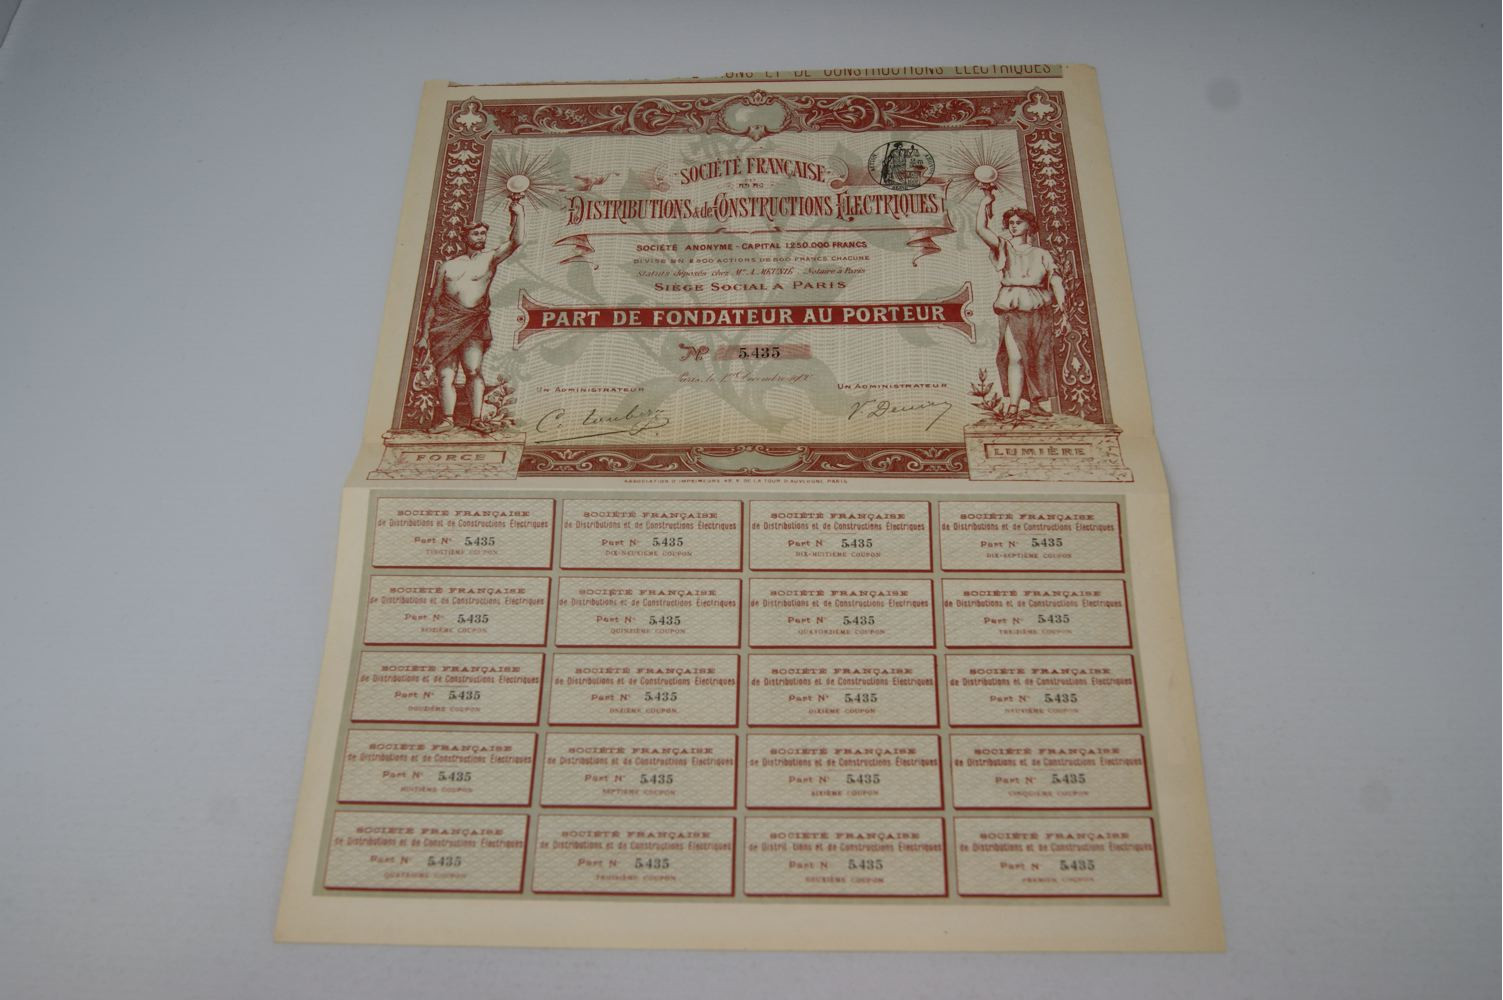 ET DE CONSTRUCTIONS ELECTRIQUES
SOCIÉTÉ FRANÇAISE
DISTRIBUTIONS & de CONSTRUCTIONS ELECTRIQUES
SOCIÉTÉ ANONYME - CAPITAL 1.250.000 FRANCS
DIVISÉ EN 2500 ACTIONS DE 500 FRANCS CHACUNE
Statuts déposés chez Me A. MEUNIÉ Notaire à Paris
SIÈGE SOCIAL A PARIS
PART DE FONDATEUR AU PORTEUR
No 5.435
Paris, le 1er Décembre
UN ADMINISTRATEUR
UN ADMINISTRATEUR
FORCE
LUMIÈRE
ASSOCIATION D'IMPRIMEURS DE LA TOUR D'AUVERGNE PARIS
SOCIÉTÉ FRANÇAISE
de Distributions et de Constructions Électriques
Part No 5.435
VINGTIÈME COUPON
SOCIÉTÉ FRANÇAISE
de Distributions et de Constructions Électriques
Part No 5.435
DIX-NEUVIÈME COUPON
SOCIÉTÉ FRANÇAISE
de Distributions et de Constructions Électriques
Part No 5.435
DIX-HUITIÈME COUPON
SOCIÉTÉ FRANÇAISE
de Distributions et de Constructions Électriques
Part No 5.435
DIX-SEPTIÈME COUPON
SOCIÉTÉ FRANÇAISE
de Distributions et de Constructions Électriques
Part No 5.435
SEIZIÈME COUPON
SOCIÉTÉ FRANÇAISE
de Distributions et de Constructions Électriques
Part No 5.435
QUINZIÈME COUPON
SOCIÉTÉ FRANÇAISE
de Distributions et de Constructions Électriques
Part No 5.435
QUATORZIÈME COUPON
SOCIÉTÉ FRANÇAISE
de Distributions et de Constructions Électriques
Part No 5.435
TREIZIÈME COUPON
SOCIÉTÉ FRANÇAISE
de Distributions et de Constructions Électriques
Part No 5.435
DOUZIÈME COUPON
SOCIÉTÉ FRANÇAISE
de Distributions et de Constructions Électriques
Part No 5.435
ONZIÈME COUPON
SOCIÉTÉ FRANÇAISE
de Distributions et de Constructions Électriques
Part No 5.435
DIXIÈME COUPON
SOCIÉTÉ FRANÇAISE
de Distributions et de Constructions Électriques
Part No 5.435
NEUVIÈME COUPON
SOCIÉTÉ FRANÇAISE
de Distributions et de Constructions Électriques
Part No 5.435
HUITIÈME COUPON
SOCIÉTÉ FRANÇAISE
de Distributions et de Constructions Électriques
Part No 5.435
SEPTIÈME COUPON
SOCIÉTÉ FRANÇAISE
de Distributions et de Constructions Électriques
Part No 5.435
SIXIÈME COUPON
SOCIÉTÉ FRANÇAISE
de Distributions et de Constructions Électriques
Part No 5.435
CINQUIÈME COUPON
SOCIÉTÉ FRANÇAISE
de Distributions et de Constructions Électriques
Part No 5.435
QUATRIÈME COUPON
SOCIÉTÉ FRANÇAISE
de Distributions et de Constructions Électriques
Part No 5.435
TROISIÈME COUPON
SOCIÉTÉ FRANÇAISE
de Distributions et de Constructions Électriques
Part No 5.435
DEUXIÈME COUPON
SOCIÉTÉ FRANÇAISE
de Distributions et de Constructions Électriques
Part No 5.435
PREMIER COUPON